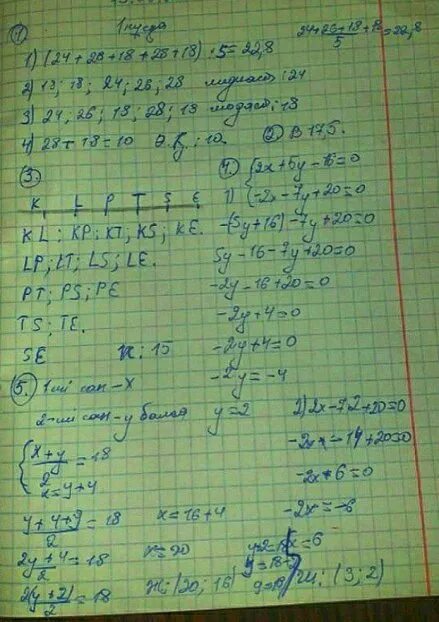 1 нұсқа
①
1) (24+26+18+28+18) : 5 = 22,8
24+26+18+18 / 5 = 22,8
2) 18; 18; 24; 26; 28 медиасы: 24
3) 24, 26, 18, 28, 18 модасы: 18
4) 28 - 18 = 10 Ө.қ: 10.
② B 17,5.
③.
K L P T S E
KL; KP; KT, KS; KE.
LP; LT; LS; LE.
PT; PS; PE
TS; TE.
SE n: 15
4. {2x+5y-16=0
1) {-2x-7y+20=0
-(5y+16)-7y+20=0
5y-16-7y+20=0
-2y-16+20=0
-2y+4=0
-2y+4=0
-2y=-4
y=2
2) 2x-7·2+20=0
-2x-14+20=0
-2x+6=0
-2x=-6
x=6
Ж: (3; 2)
⑤. 1-ші сан - x
2-ші сан - y болса
{x+y / 2 = 18
x=y+4
y+4+y / 2 = 18
x=16+4
2y+4 / 2 = 18
x=20
2(y+2) / 2 = 18
Ж: (20; 16)
y+2=18
y=18-2